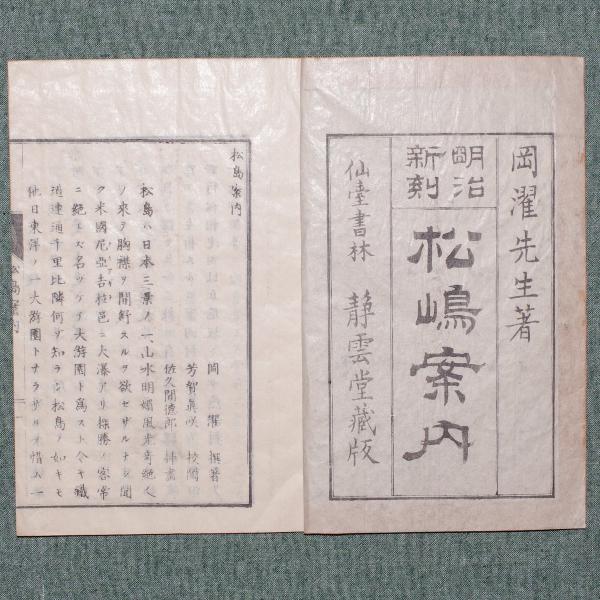 岡濯先生著
明治
新刻
松嶋案内
仙臺書林 靜雲堂藏版
松島案内
岡 濯 撰著
芳賀眞咲 校閲
佐久間德郎 挿畫
松島ハ日本三景ノ一山水明媚風光奇絶人
ノ來テ胸襟ヲ開舒スルヲ欲セザルナシ聞
ク米國尼亞吉拉邑ニ大瀑アリ探勝ノ客常
ニ絶エズ名ツケテ大游園ト爲スト今ヤ鐵
道連通千里比隣何ゾ知ラン松島ノ如キモ
他日東洋ノ一大游園トナラザルヲ惜ム一
松島案内